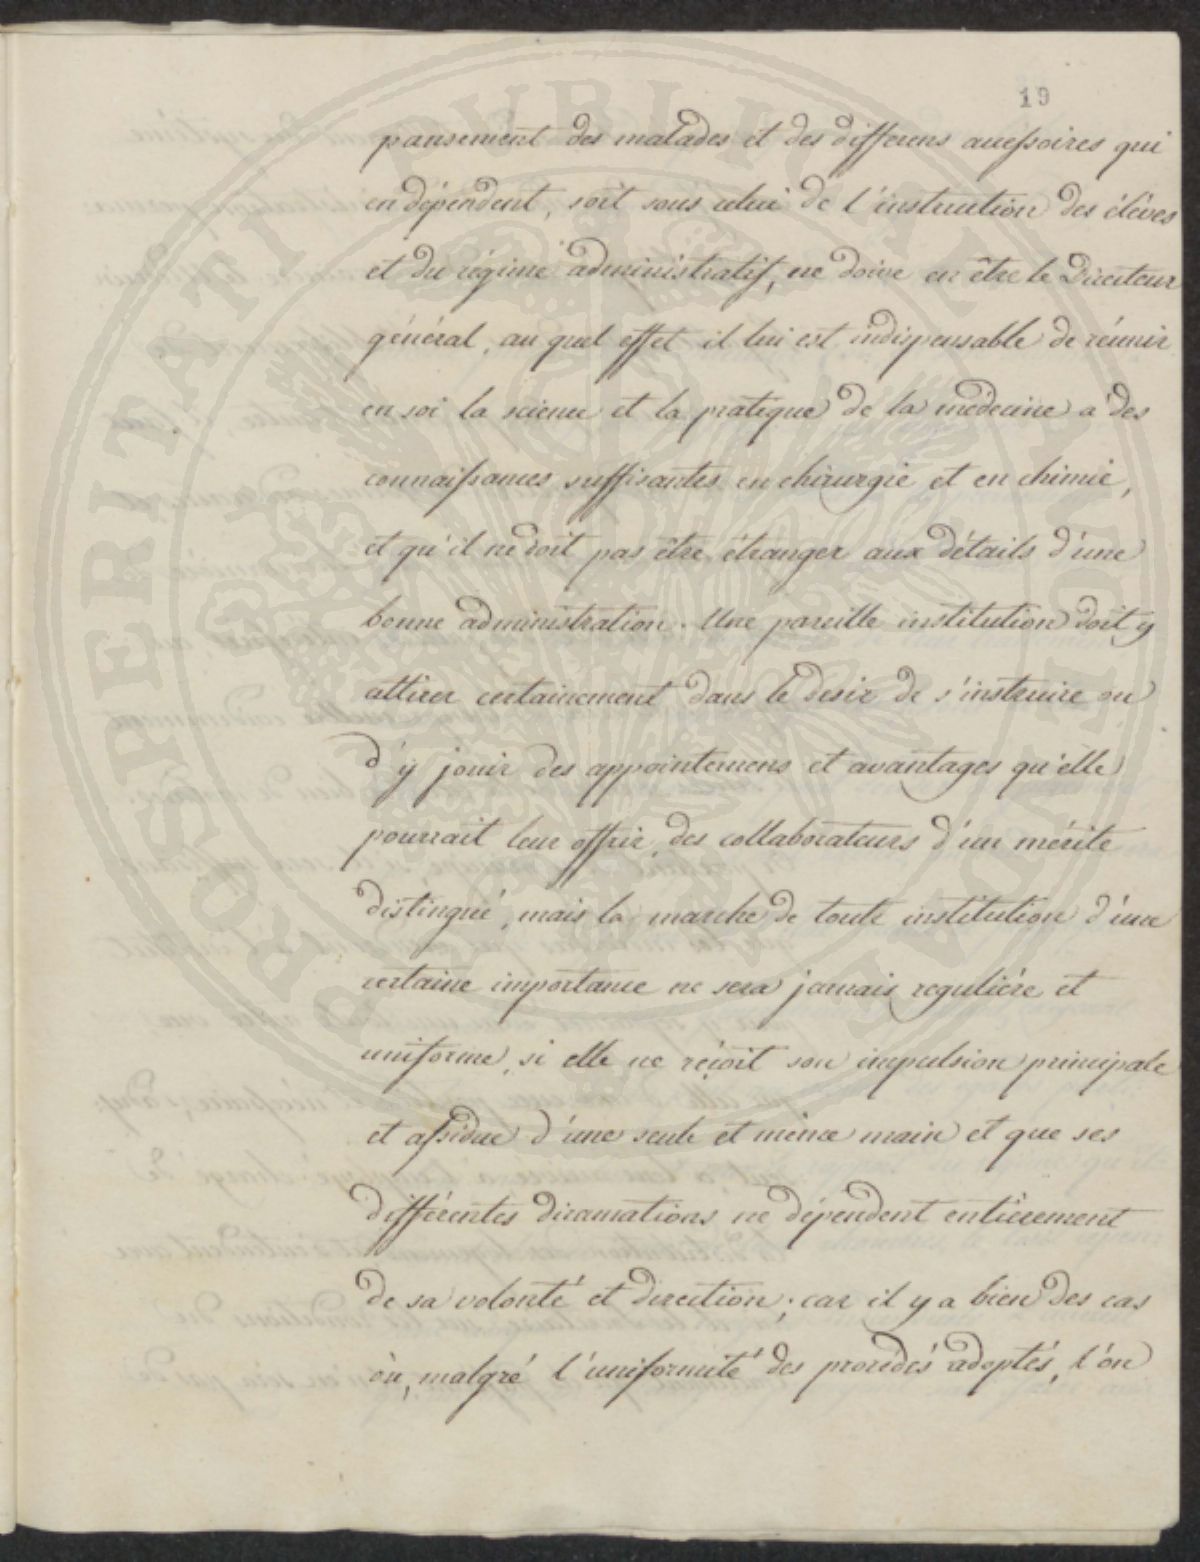 19
pansement des malades et des differens accessoires qui
en dépendent, soit sous celui de l'instruction des élèves
et du régime administratif, ne doive en être le Directeur
général, au quel effet il lui est indispensable de réunir
en soi la science et la pratique de la médecine a des
connaissances suffisantes en chirurgie et en chimie,
et qu'il ne doit pas être étranger aux détails d'une
bonne administration. Une pareille institution doit y
attirer certainement dans le desir de s'instruire ou
d'y jouir des appointemens et avantages qu'elle
pourrait leur offrir, des collaborateurs d'un mérite
distingué, mais la marche de toute institution d'une
certaine importance ne sera jamais regulière et
uniforme, si elle ne réçoit son impulsion principale
et assidue d'une seule et même main et que ses
différentes diramations ne dépendent entièrement
de sa volonté et direction; car il y a bien des cas
où, malgré l'uniformité des procédés adoptés, l'on
PROSPERITATI PUBLICAE AUGENDAE